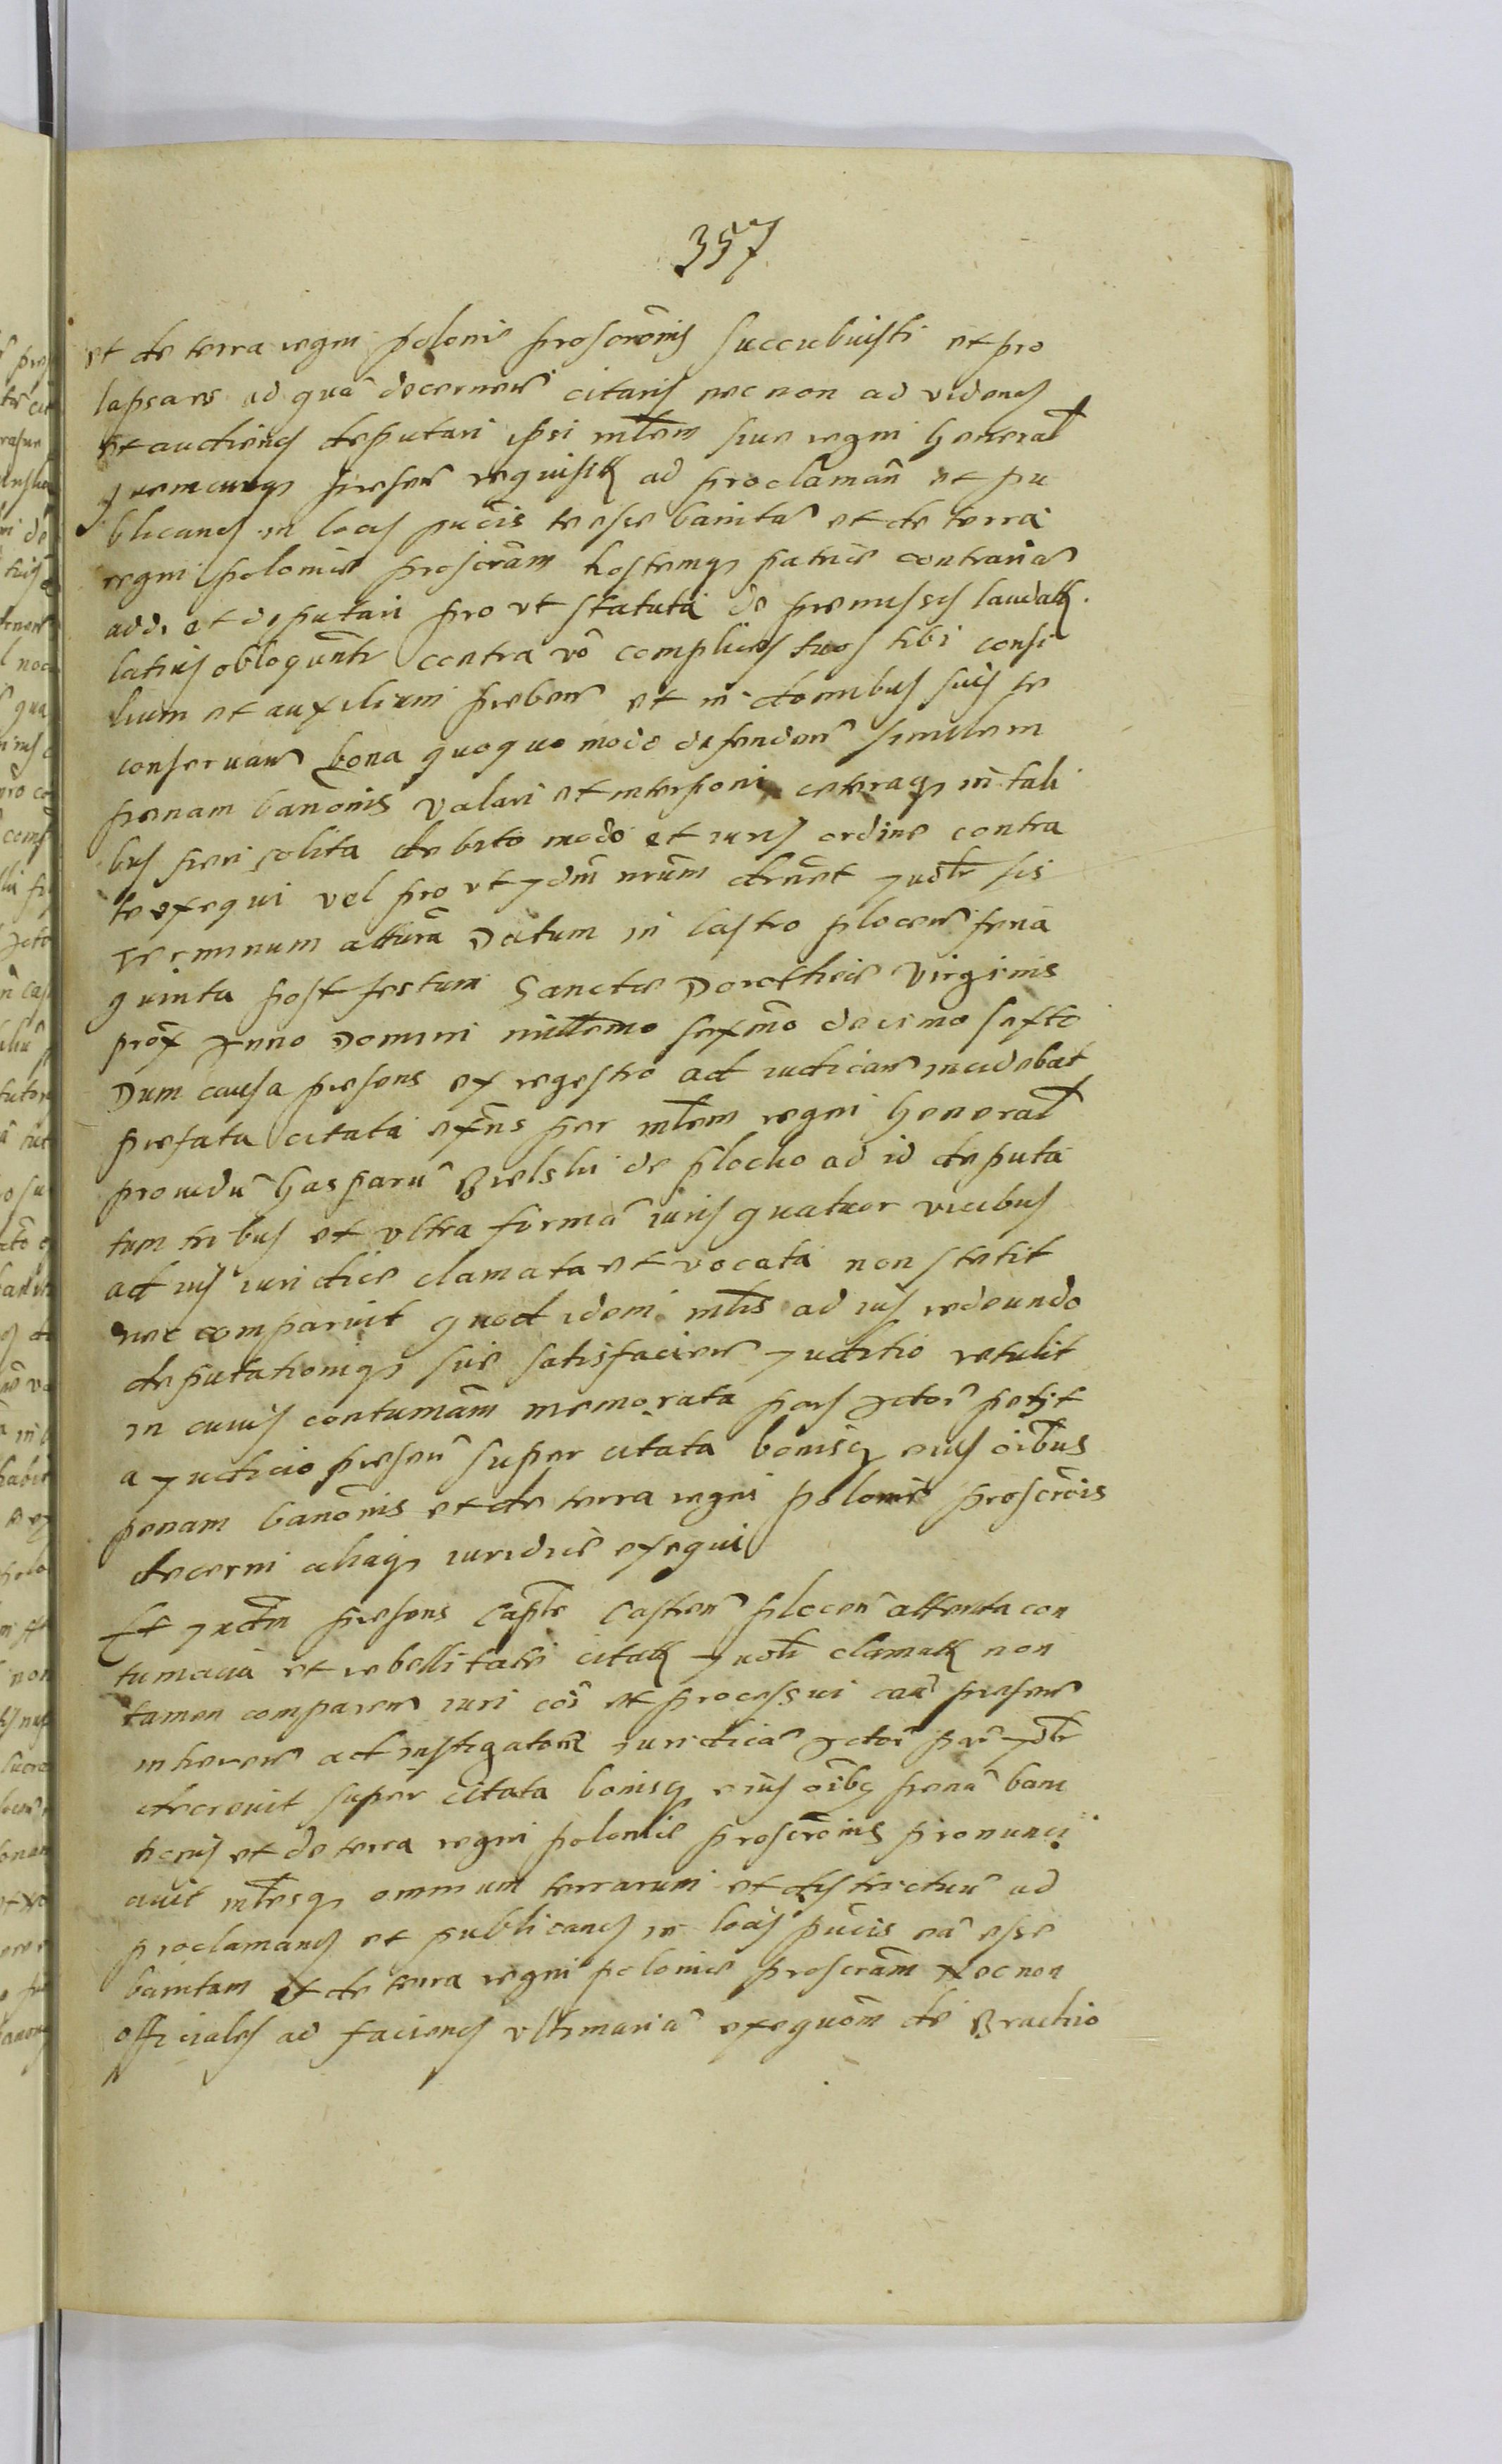 357
et de terra regni Polonie proscrõnis succubuisti et pro
lapsa es ad quã decernen̄ citaris nec non ad videnḍ
et audienḍ deputari ipsi mltem siue regni General̃
quemcunqȝ presen̄ requisit̃ ad proclaman̄ et pu
blicanḍ in locis pūcis te esse banitã et de terra
regni Polonie proscrãm hostemqȝ patrie contrariã
addi et deputari pro vt statuta de premissis laudat̃
latius obloquũntr contra vō complices tuos tibi consi
lium et auxilium preben̄ et in domibus suis te
conseruan̄ bona quoquo modo defenden̄ similem
penam banōnis valari et interponi ceteraqȝ in tali
bus fieri solita debito modo et iuris ordine contra
te exequi vel pro vt Jdm nrũm dcrnet Judtr sis
Terminum attura Datum in Castro plocen̄ feria
quinta post festum Sanctæ Dorotheæ Virginis
prox Anno Domini millemo sexmo decimo sexto
Dum causa presens ex regestro ad iudican̄ incidebat
prefata citata exn̄s per mltem regni General̃
prouidũ Gasparũ Bielski de plocko ad id deputa
tum tribus et vltra formã iuris quatuor vicibus
ad ius iuridice clamata et vocata non stetit
nec comparuit quod idem mltis ad ius redeundo
deputationiqȝ sue satisfacien̄ Juditio retulit
in cuius contumãm memorata pars Actor̃ petijt
a Judicio presen̄ super citata bonisqȝ eius oĩbus
penam banōnis et de terra regni Polonie proscrõis
decerni aliaqȝ iuridice exequi
Et Judm presens Capñle Castren̄ plocen̄ attenta con
tumacia et rebellitate citat̃ Judtr clamat̃ non
tamen comparen̄ iuri coĩ et processui cau͂ presen̄
inheren̄ ad instigatõem iuridicã Actor̃ par̃ Jdtr
decreuit super citata bonisqȝ eius oĩbȝ penã bani
tionis et de terra regni Polonie proscrõnis pronunci
auit mltesqȝ omnium terrarum et districtuũ ad
proclamanḍ et publicanḍ in locis pūcis eã esse
banitam et de terra regni Polonie proscrãm Nec non
officiales ad facienḍ vltimariã exequõm de Brachio